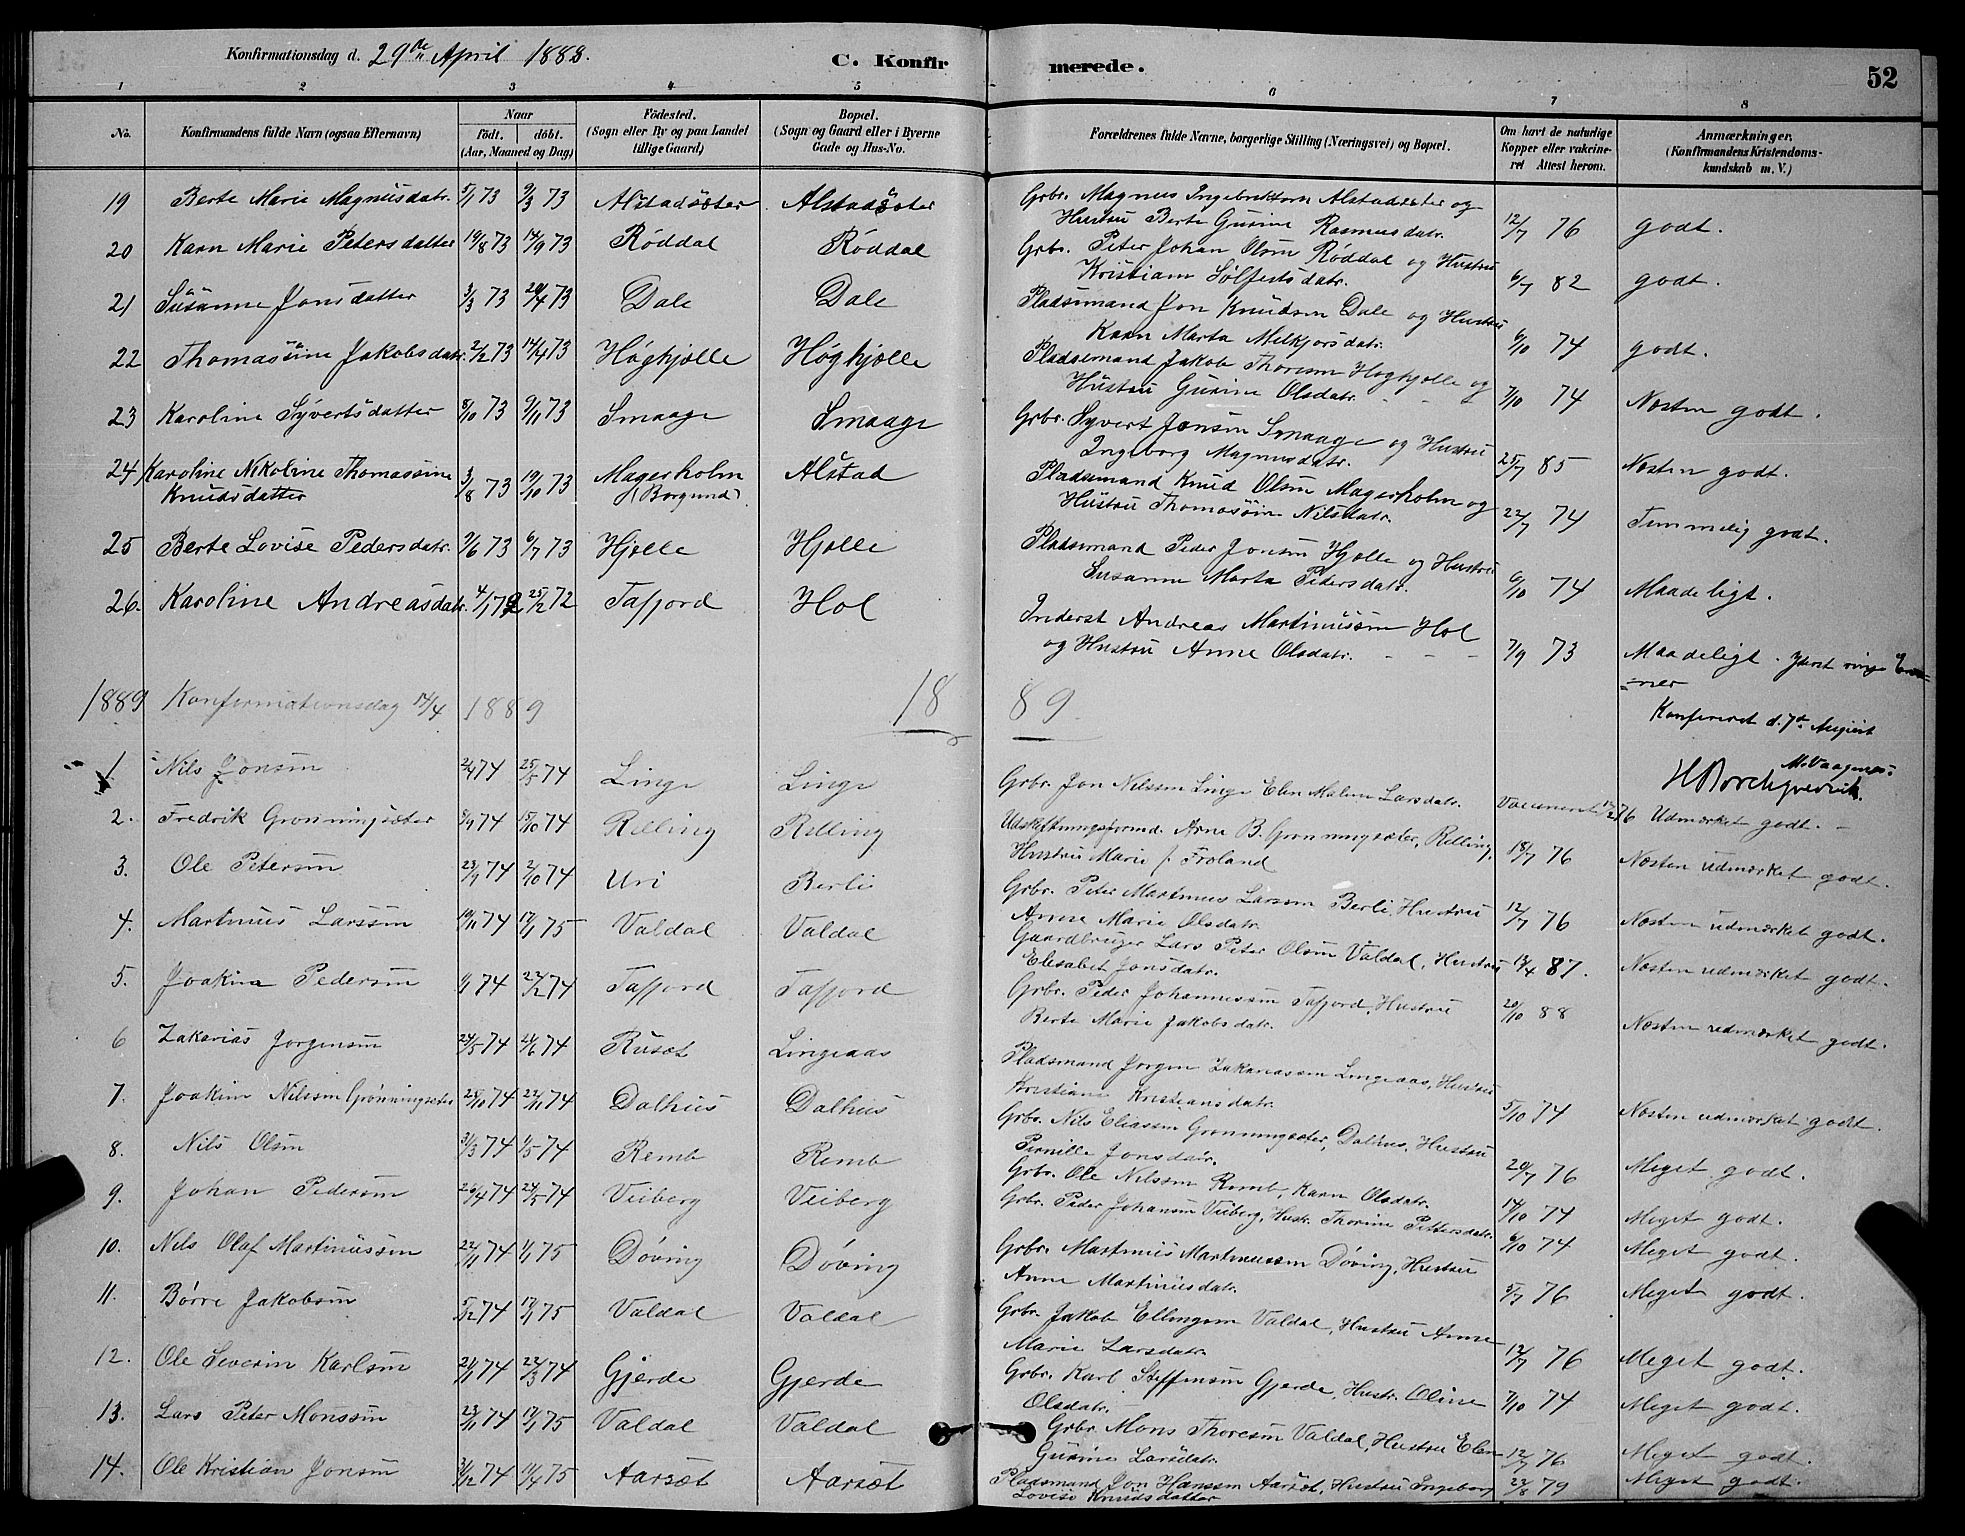 Konfirmationsdag d. 29de April 1888.
C. Konfirmerede.
52
1 2 3 4 5 6 7 8
No.
Konfirmandens fulde Navn (ogsaa Efternavn)
Naar
født. døbt.
(Aar, Maaned og Dag)
Fødested.
(Sogn eller By og paa Landet
tillige Gaard)
Bopæl.
(Sogn og Gaard eller i Byerne
Gade og Hus-No.
Forældrenes fulde Navne, borgerlige Stilling (Næringsvei) og Bopæl.
Om havt de naturlige
Kopper eller vakcine-
ret Attest herom.
Anmærkninger.
(Konfirmandens Kristendoms-
kundskab m. V.)
19 Berte Marie Magnusdatr. 5/1 73 9/3 73 Alstadsæter Alstadsæter Grbr. Magnus Ingebriktsen Alstadsæter og
Hustru Berte Gurine Rasmusdatr. 12/7 76 godt.
20 Karn Marie Petersdatter 19/8 73 14/9 73 Røddal Røddal Grbr. Peter Johan Olsen Røddal og Hustru
Kristiane Sølfestsdatr. 6/7 82 godt.
21 Susanne Jonsdatter 3/3 73 20/4 73 Dale Dale Pladsmand Jon Knudsen Dale og Hustru
Karn Marta Melkjorsdatr. 6/10 74 godt.
22 Thomassine Jakobsdatr. 2/2 73 14/4 73 Høghjølle Høghjølle Pladsemand Jakob Thoresen Høghjølle og
Hustru Gurine Olsdatr. 7/10 74 Næsten godt.
23 Karoline Syvertsdatter 8/10 73 9/11 73 Smaage Smaage Grbr. Syvert Jonsen Smaage og Hustru
Ingeborg Magnusdatr. 25/7 85 Næsten godt.
24 Karoline Nikoline Thomassine
Knudsdatter 3/8 73 19/10 73 Magerholm
(Borgund) Alstad Pladsemand Knud Olsen Magerholm og
Hustru Thomasine Nilsdatr. 22/7 74 Temmelig godt.
25 Berte Lovise Pedersdatr. 7/6 73 6/7 73 Hjelle Hjelle Pladsemand Peder Jonsen Hjelle og Hustru
Susanne Marta Pedersdatr. 6/10 74 Maadeligt.
26. Karoline Andreasdatr. 4/1 72 25/2 72 Tafjord Hol Inderst Andreas Martinussen Hol
og Hustru Anne Olsdatr. 7/9 73 Maadeligt. Yderst ringe Ev-
ner
Konfereret d. 7de August
M. Vaagenes
H Borchgrevink.
1889 Konfirmationsdag 14/4 1889
18 89
1 Nils Jonsen 2/4 74 25/5 74 Linge Linge Grbr. Jon Nilssen Linge Elen Malene Larsdatr. 76 Udmærket godt.
2. Fredrik Grønningsæter 8/9 74 15/10 74 Relling Relling Udskiftningsformd. Arne B. Grønningsæter, Relling,
Hustru Marie f. Froland 18/7 76 Næsten udmærket godt.
3. Ole Petersen 74 2/10 74 Uri Berli Grbr. Peter Martinus Larsen Berli, Hustru
Anne Marie Olsdatr. 12/7 76 Næsten udmærket godt.
4. Martinus Larssen 19/11 74 17/1 75 Valdal Valdal Gaardbruger Lars Peter Olsen Valdal, Hustru
Elisabet Jonsdatr. 13/4 87. Næsten udmærket godt.
5. Joakim Pedersen 74 22/2 74 Tafjord Tafjord Grbr. Peder Johannessen Tafjord, Hustru
Berte Marie Jakobsdatr. 20/10 88 Næsten udmærket godt.
6 Zakarias Jørgensen 24/5 74 24/6 74 Rusæt Lingeaas Pladsmand Jørgen Zakariassen Lingeaas, Hustru
Kristiane Kristiansdatr. 5/10 74 Næsten udmærket godt.
7. Joakim Nilssen Grønningsæter 25/10 74 22/11 74 Dalhus Dalhus Grbr. Nils Eliassen Grønningsæter, Dalhus, Hustru
Pernille Jonsdatr. 20/7 76 Meget godt.
8. Nils Olsen 31/3 74 1/5 74 Remb Remb Grbr. Ole Nilssen Remb, Karn Olsdatr. 14/10 74 Meget godt.
9. Johan Pedersen 26/4 74 24/5 74 Veiberg Veiberg Grbr. Peder Johansen Veiberg, Hustr. Thorine Pettersdatr. 6/10 74 Meget godt.
10. Nils Olaf Martinussen 22/11 74 1/1 75 Døving Døving Grbr. Martinus Martinussen Døving, Hustru
Anne Martinusdatr. 5/7 76 Meget godt.
11. Børre Jakobsen 5/12 74 17/1 75 Valdal Valdal Grbr. Jakob Ellingsen Valdal, Hustru Anne
Marie Larsdatr. 12/7 76 Meget godt.
12. Ole Severin Karlsen 21/1 74 22/3 74 Gjerde Gjerde Grbr. Karl Steffensen Gjerde, Hustr. Oline
Olsdatr. 7/10 74 Meget godt.
13. Lars Peter Monssen 23/11 74 17/1 75 Valdal Valdal Grbr. Mons Thoresen Valdal, Hustru Elen
Gurine Larsdatr. 12/7 76 Meget godt.
14. Ole Kristian Jonsen 31/12 74 11/4 75 Aarsæt Aarsæt Pladsmand Jon Hanssen Aarsæt, Hustru Ingeborg
Lovise Knudsdatter 22/8 79 Meget godt.